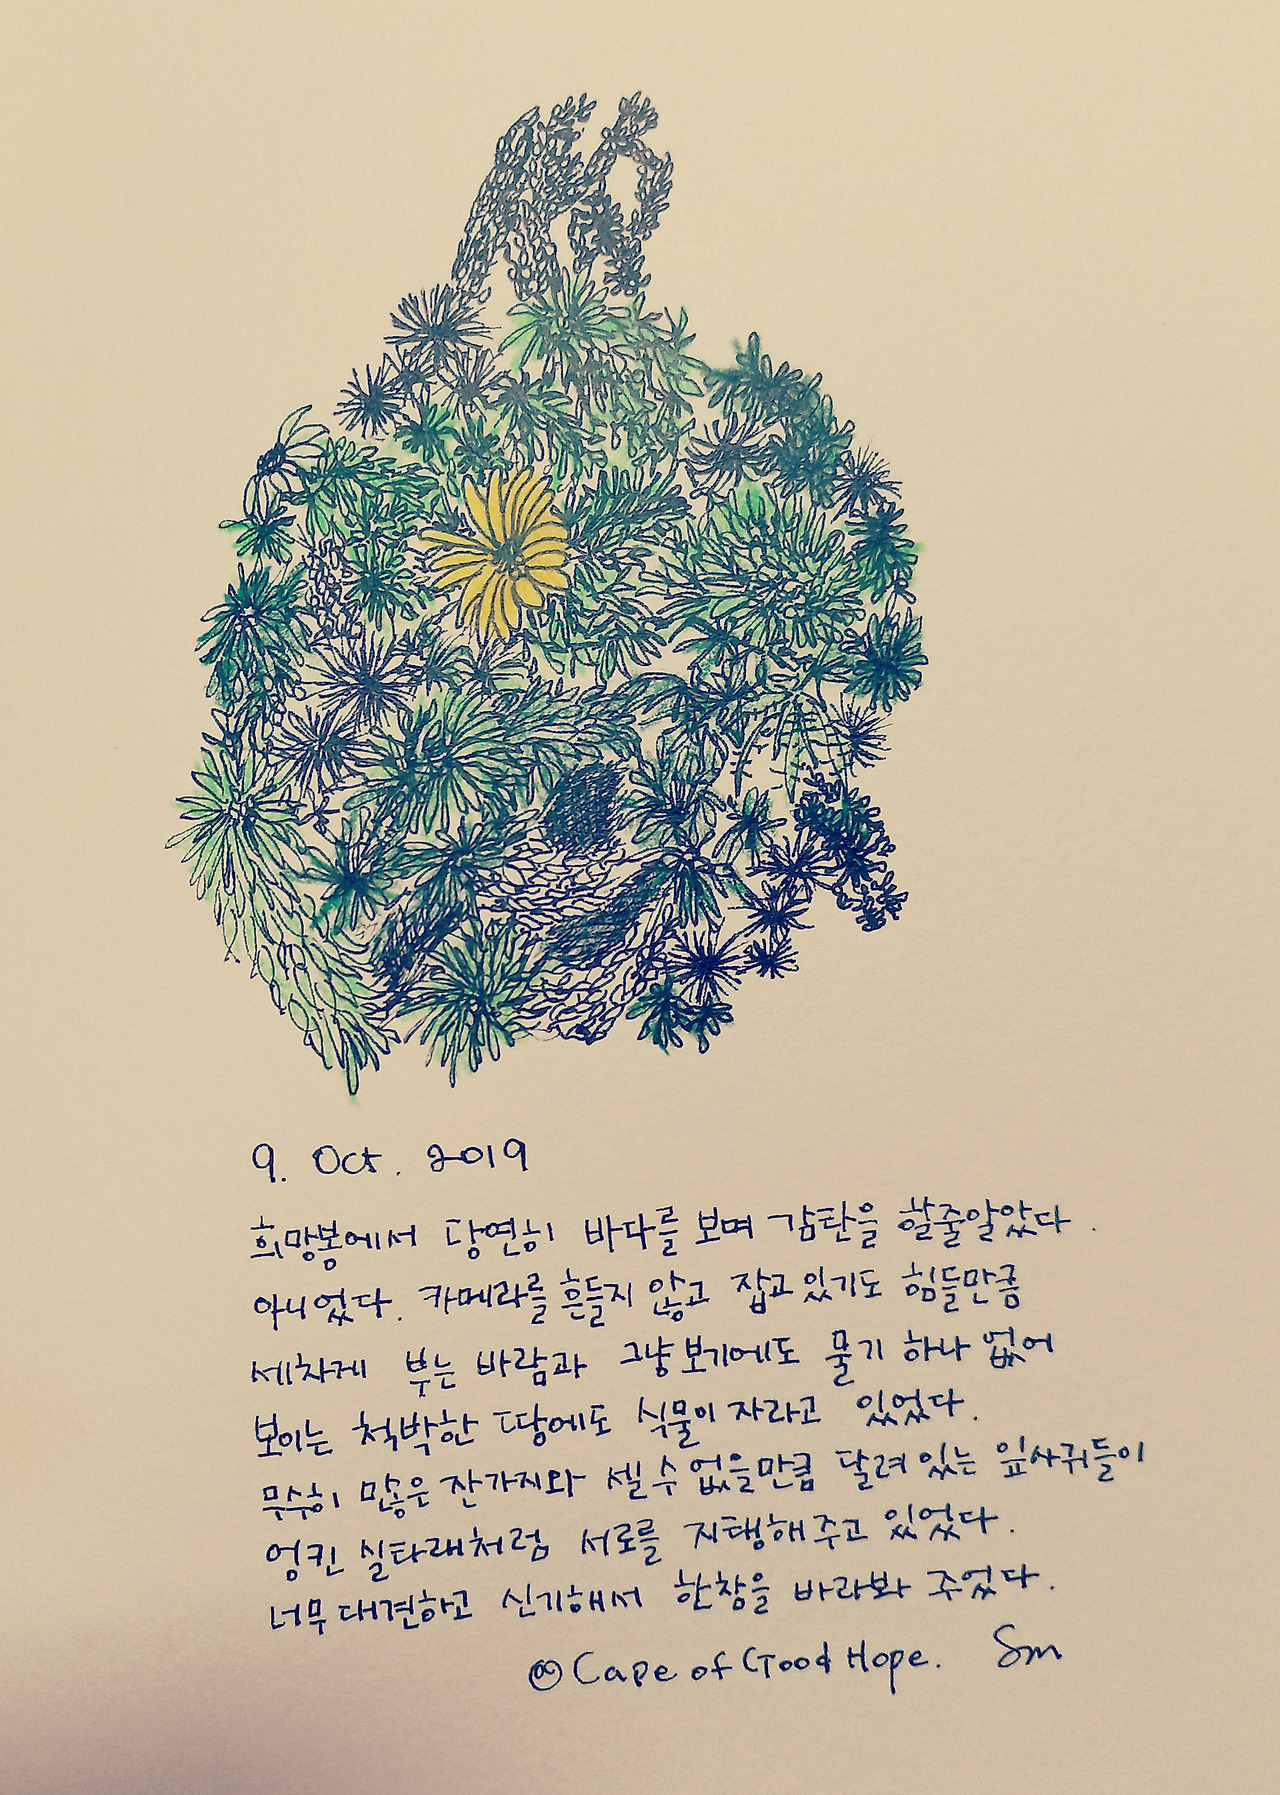 9. Oct. 2019
희망봉에서 당연히 바다를 보며 감탄을 할줄알았다.
아니었다. 카메라를 흔들지 않고 잡고 있기도 힘들만큼
세차게 부는 바람과 그냥 보기에도 물기 하나 없어
보이는 척박한 땅에도 식물이 자라고 있었다.
무수히 많은 잔가지와 셀 수 없을만큼 달려 있는 잎사귀들이
엉킨 실타래처럼 서로를 지탱해주고 있었다.
너무 대견하고 신기해서 한참을 바라봐 주었다.
Cape of Good Hope. Sm